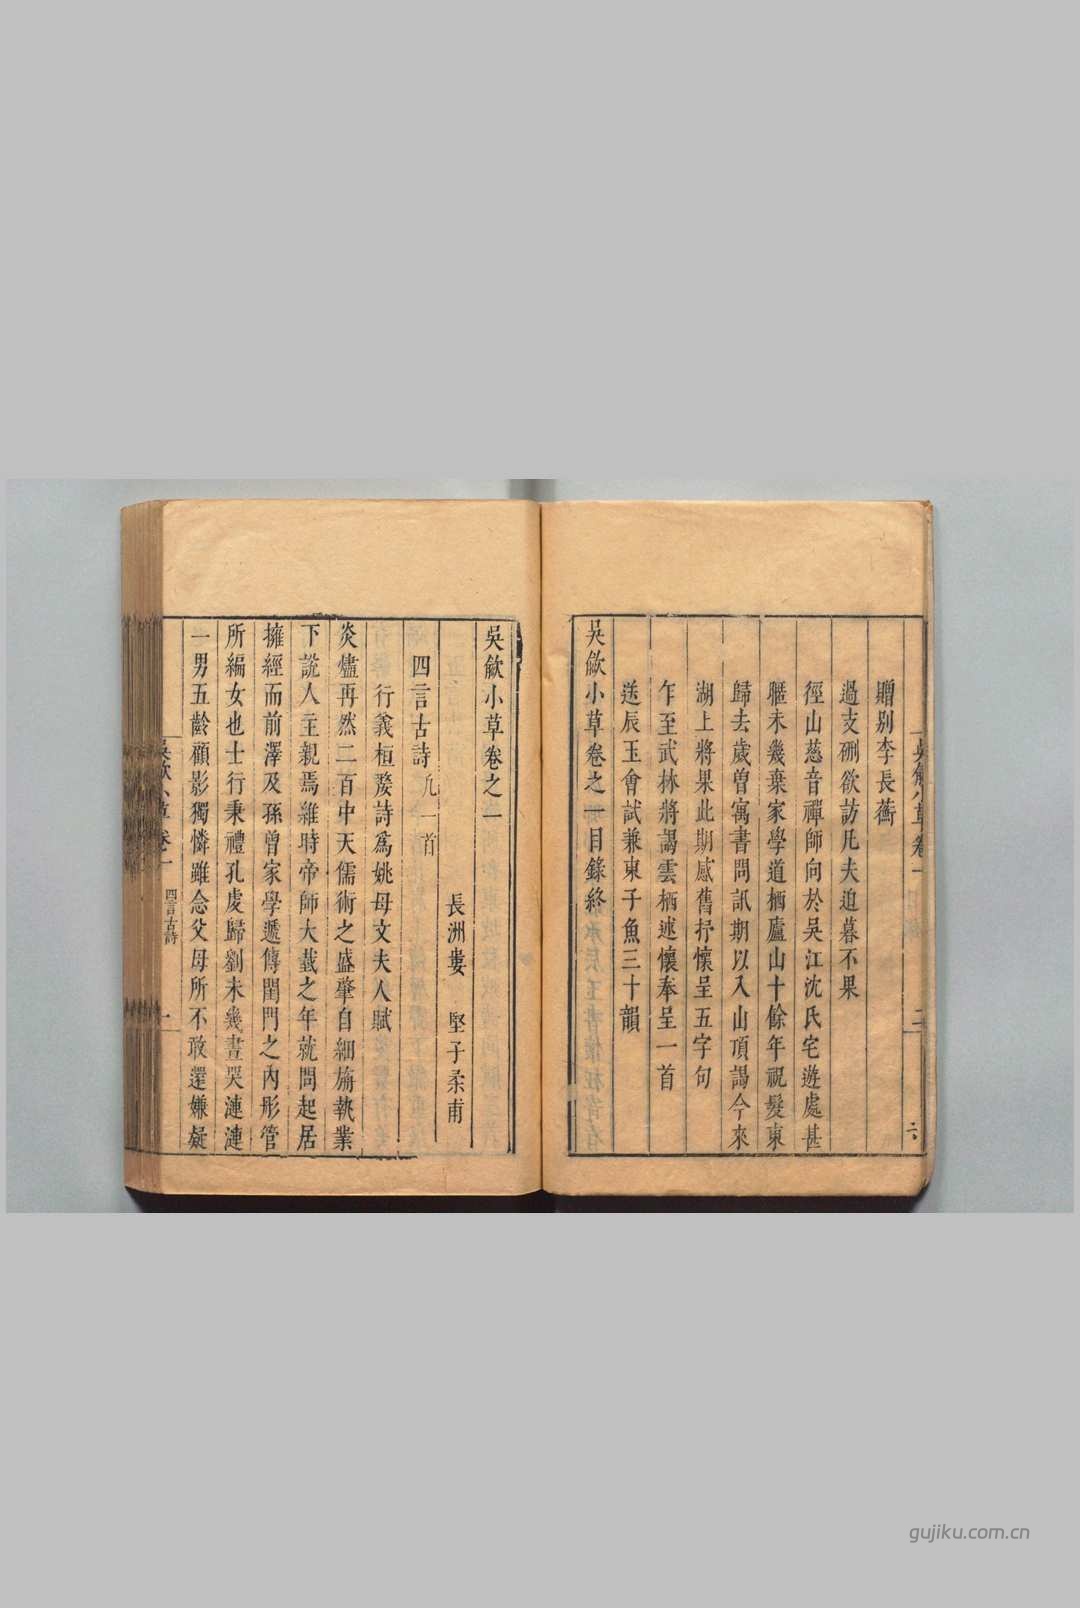 贈别李長蘅
過支硎欲訪凡夫迫暮不果
徑山慈音禪師向於吳江沈氏宅遊處甚
驩未幾棄家學道栖廬山十餘年祝髮東
歸去歲曽寓書問訊期以入山頂謁今來
湖上將果此期感舊抒懷呈五字句
乍至武林將謁雲栖述懷奉呈一首
送辰玉會試兼柬子魚三十韻
吳歈小草卷之一目錄終
吳歈小草卷之一
長洲婁 堅子柔甫
四言古詩 凡一首
行義桓嫠詩爲姚母文夫人賦
炎燼再然二百中天儒術之盛肇自細旃執業
下説人主親焉維時帝師大臷之年就問起居
擁經而前澤及孫曾家學遞傳閨門之內彤管
所編女也士行秉禮孔虔歸劉未幾晝哭漣漣
一男五齡顧影獨憐雖念父母所不敢還嫌疑
吳歈小草 卷一
四言古詩
一
gujiku.com.cn